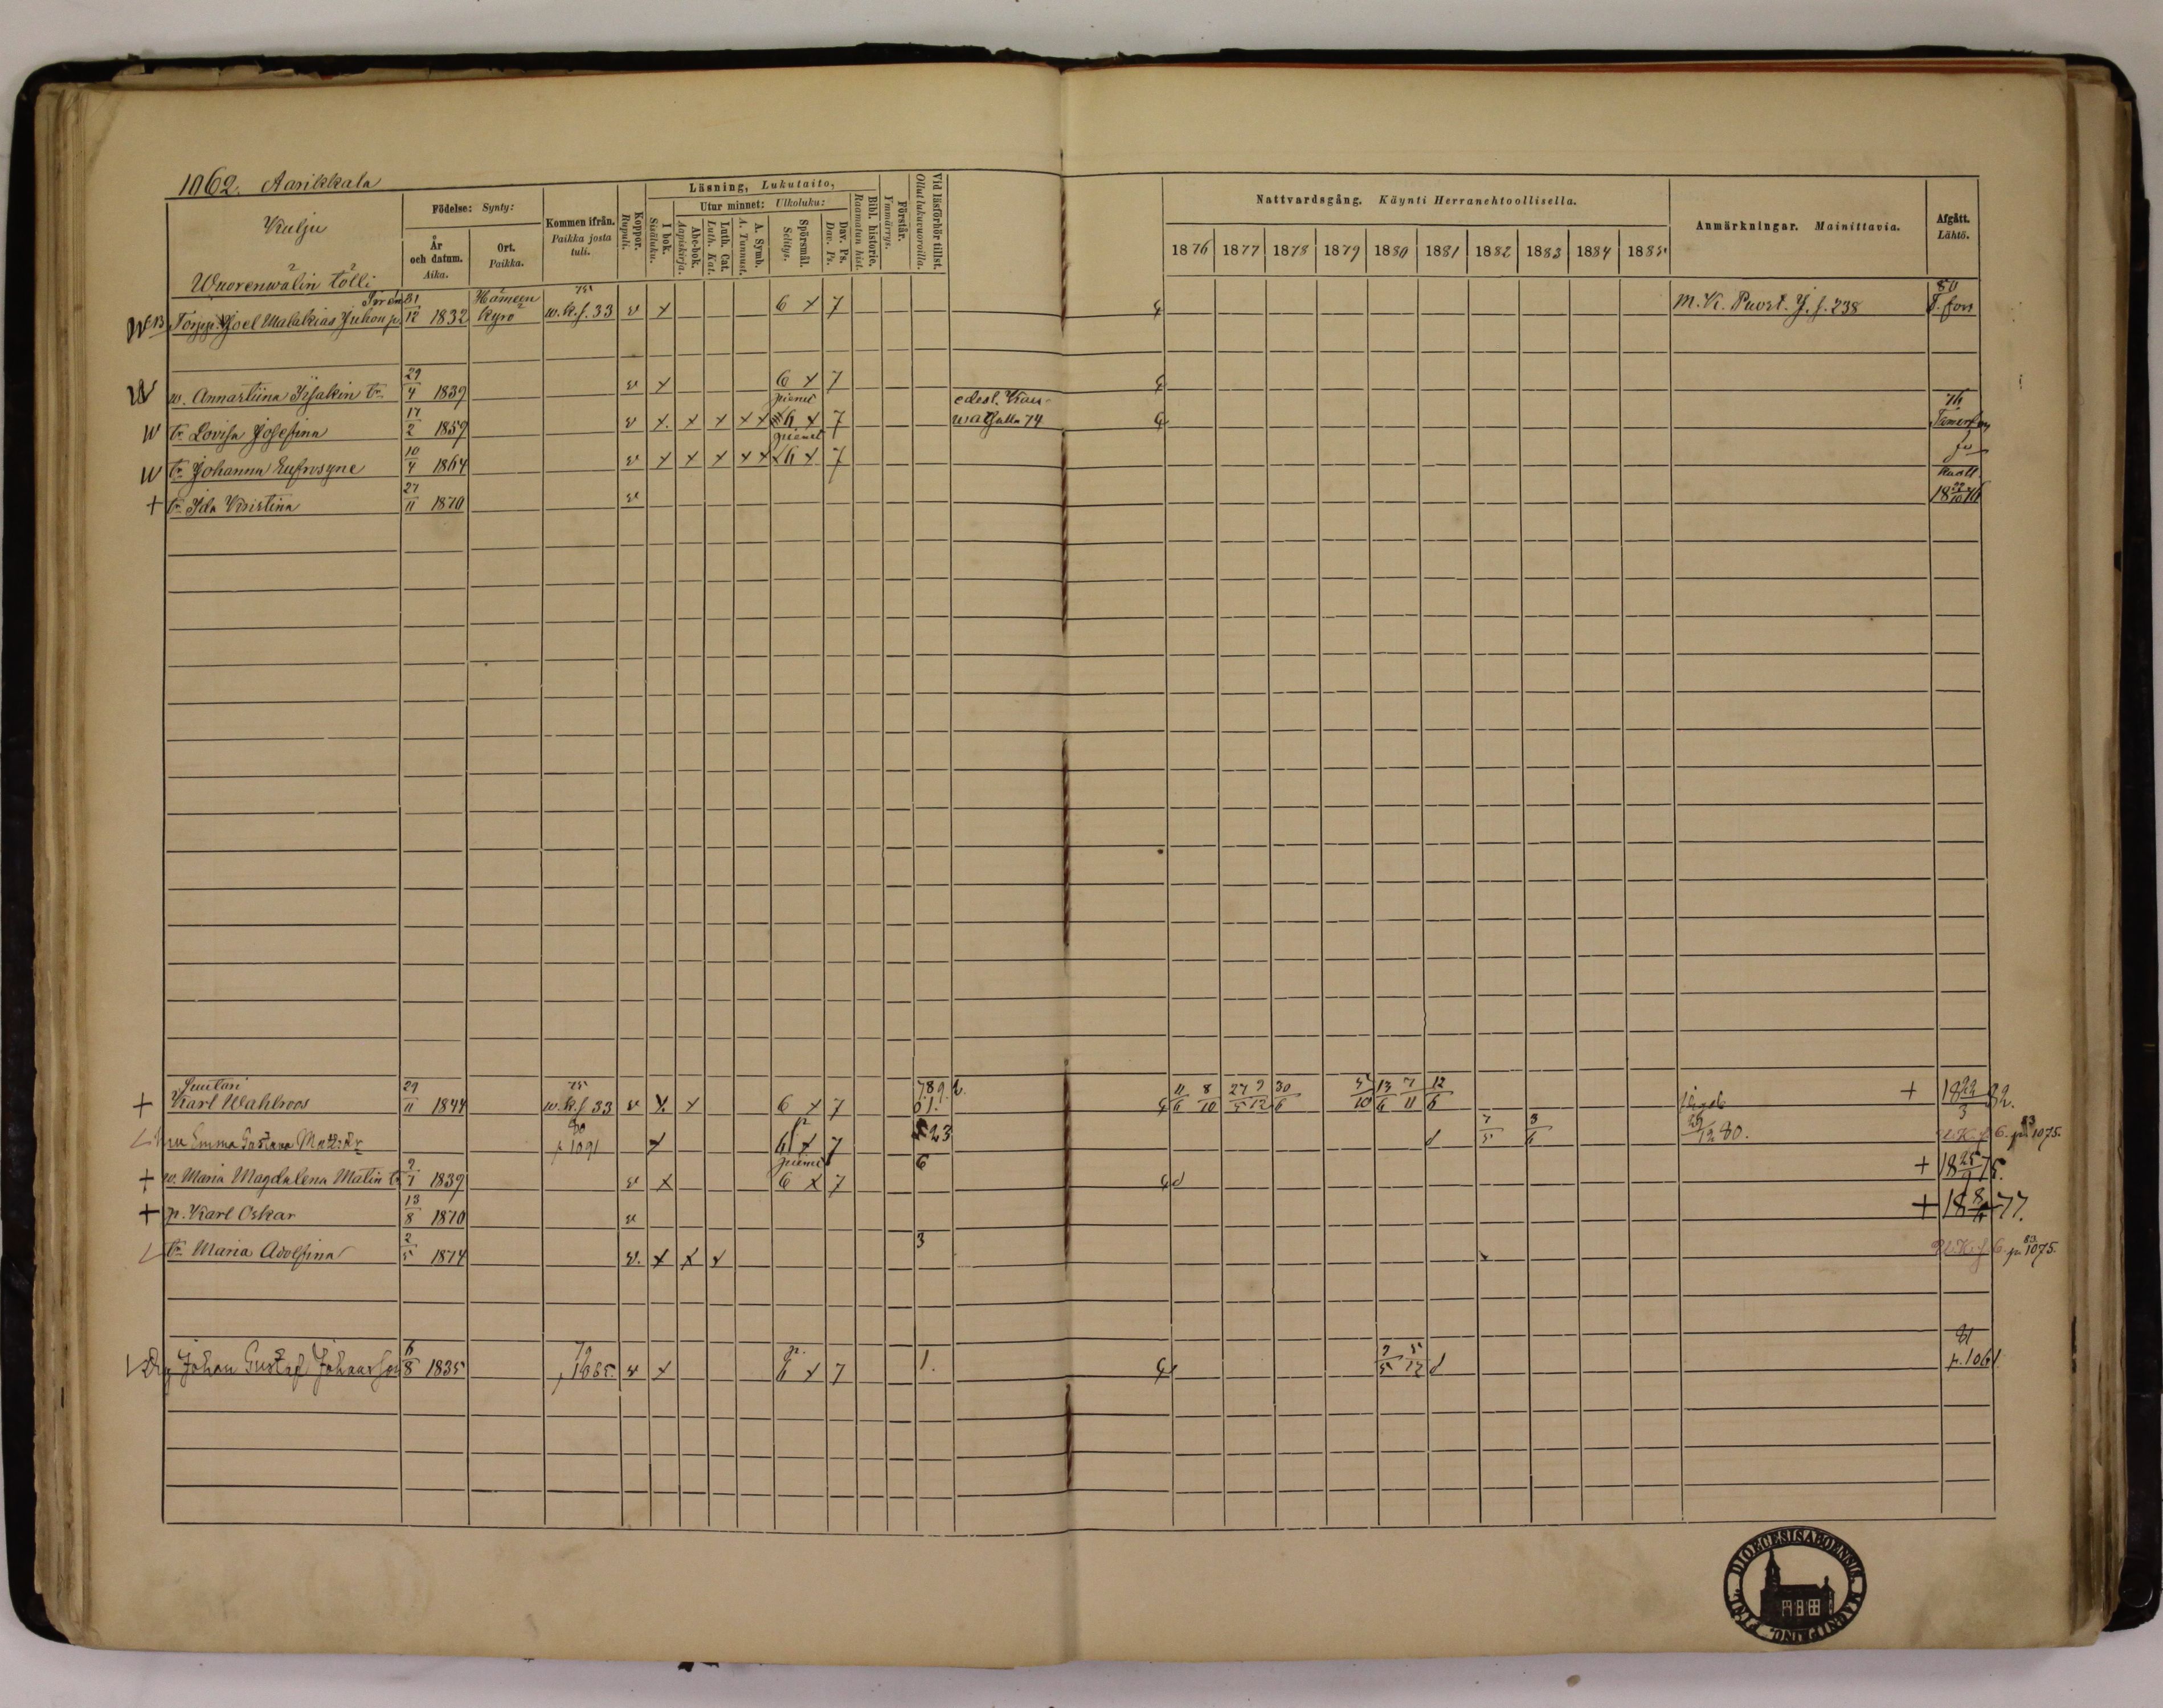 1062. Aarikkala
Kalju
Födelse: Synty:
År och datum. Aika.
Ort. Paikka.
Kommen ifrån. Paikka josta tuli.
Koppor. Rupuli.
Läsning, Lukutaito,
I bok. Sisäluku.
Utur minnet: Ulkoluku:
Abc-bok. Aapiskirja.
Luth. Cat. Luth. Kat.
A. Symb. A. Tunnust.
Spörsmål. Selitys.
Dav. Ps. Dav. Ps.
Bibl. historie. Raamatun hist.
Förstår. Ymmärrys.
Vid läsförhör tillst. Ollut lukuvuoroilla.
Nattvardsgång. Käynti Herranehtoollisella.
1876 1877 1878 1879 1880 1881 1882 1883 1884 1885
Anmärkningar. Mainittavia.
Afgått. Lähtö.
Wuorenwälin tölli
Torpp. Joel Malakias Juhon p. 31/12 1832 Hämeen Kyrö 75 w.k.s. 33 v x 6 x 7 M.K. Puost. J. s. 238 80 T.fors
w. Annastiina Isakin tr. 29/4 1839 v x 6 x 7
tr. Lovisa Josefina 17/2 1859 v x x x x x pienet h x 7 76
tr. Johanna Eufrosyne 10/4 1864 v x x x x x pienet h x 7
+ tr. Ida Kristina 27/11 1870 v Kuoll 18 22/10 76
Suutari
+ Karl Wahlroos 29/11 1844 75 w.k.s 33 v x x 6 x 7 7.8.9. 11/6 8/10 27/5 9/12 30/6 5/10 13/6 7/11 12/6 + 18 22/3 82.
Emma Gustava Matt.dr 80 p 1091 x 6 x 7 23 d 7/5 3/6 29/12 80. 83 p. 1075.
+ w. Maria Magdalena Matin tr 2/7 1839 v x pienet 6 x 7 6 d + 18 25/9 75.
+ p. Karl Oskar 13/8 1870 v + 18 8/11 77.
tr. Maria Adolfina 2/5 1874 v. x x x 3 U.K. s. 6. 83 p. 1075.
Johan Gustaf Johansson 6/8 1835 79 p 1065. v x p. 6 x 7 1. 9/5 5/12 d 81 p. 1061
SIGILL. DIOECESIS ABOENSIS.